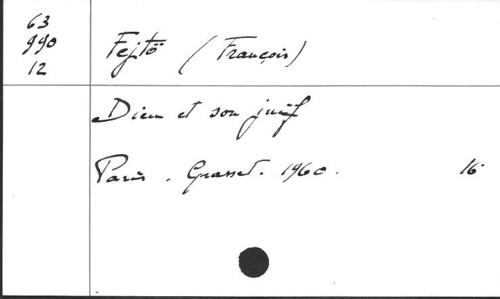 63
990
12
Fejtö (François)
Dieu et son juif
Paris. Grasset. 1960. 16